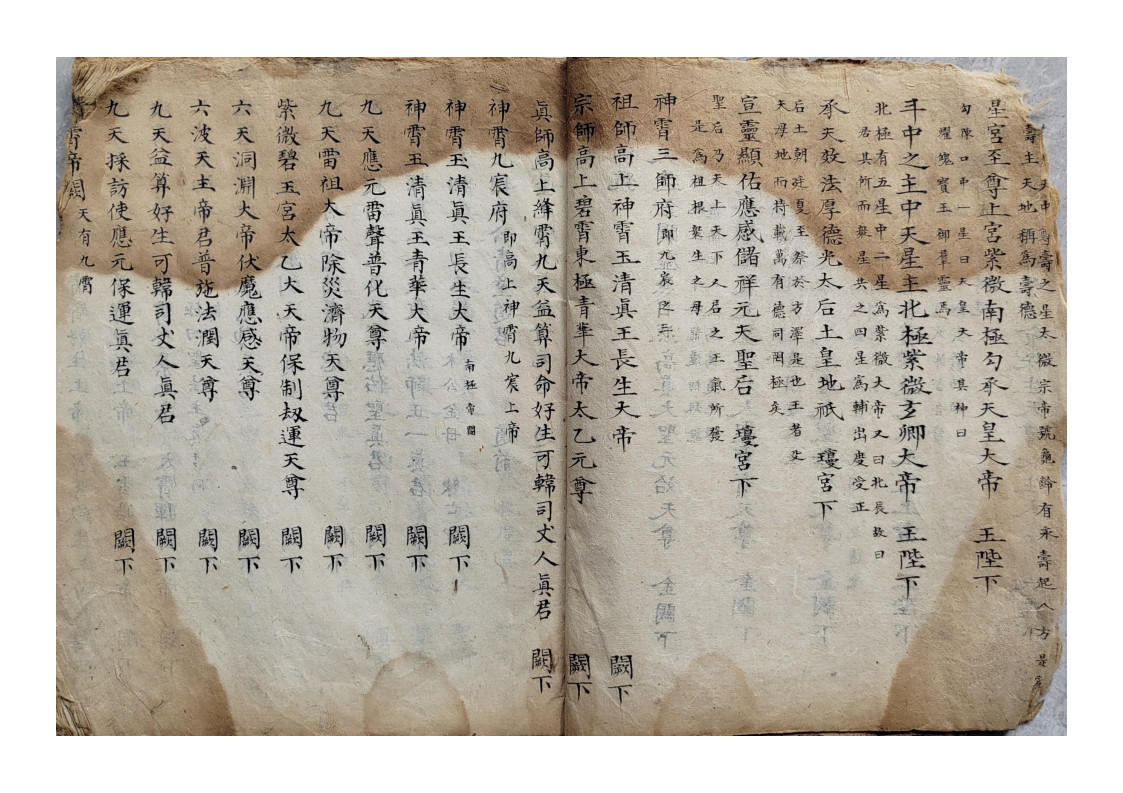 天中尊壽之星太微宗帝號龜歸有永壽起八方是
壽主天地稱為壽德
星宮至尊上宮紫微南極勾承天皇大帝 玉陛下
勾陳口中一星曰天皇大帝其神曰
耀魄寳玉御羣靈焉
斗中之主中天星主北極紫微玄卿大帝 玉陛下
北極有五星中一星為紫微大帝又曰北辰故曰
君其所而眾星共之四星為輔出度受正
承天效法厚德光大后土皇地祇 瓊宮下
后土朝廷夏至祭於方澤是也王者父
天母地而持載萬有德同罔極矣
宣靈顯佑應感儲祥元天聖后 瓊宮下
聖后乃天上天下人君之正氣所發
是為祖根眾生之母
神霄三師府 即九宸
祖師高上神霄玉清眞王長生大帝 闕下
宗師高上碧霄東極青華大帝太乙元尊 闕下
眞師高上絳霄九天益算司命好生可韓司丈人眞君 闕下
神霄九宸府 即高上神霄九宸上帝
神霄玉清眞王長生大帝 南極帝闕 闕下
神霄玉清眞王青華大帝 闕下
九天應元雷聲普化天尊 闕下
九天雷祖大帝除災濟物天尊 闕下
紫微碧玉宮太乙大天帝保制劫運天尊 闕下
六天洞淵大帝伏魔應感天尊 闕下
六波天主帝君普施法潤天尊 闕下
九天益算好生可韓司丈人眞君 闕下
九天採訪使應元保運眞君 闕下
霄帝闕 天有九霄